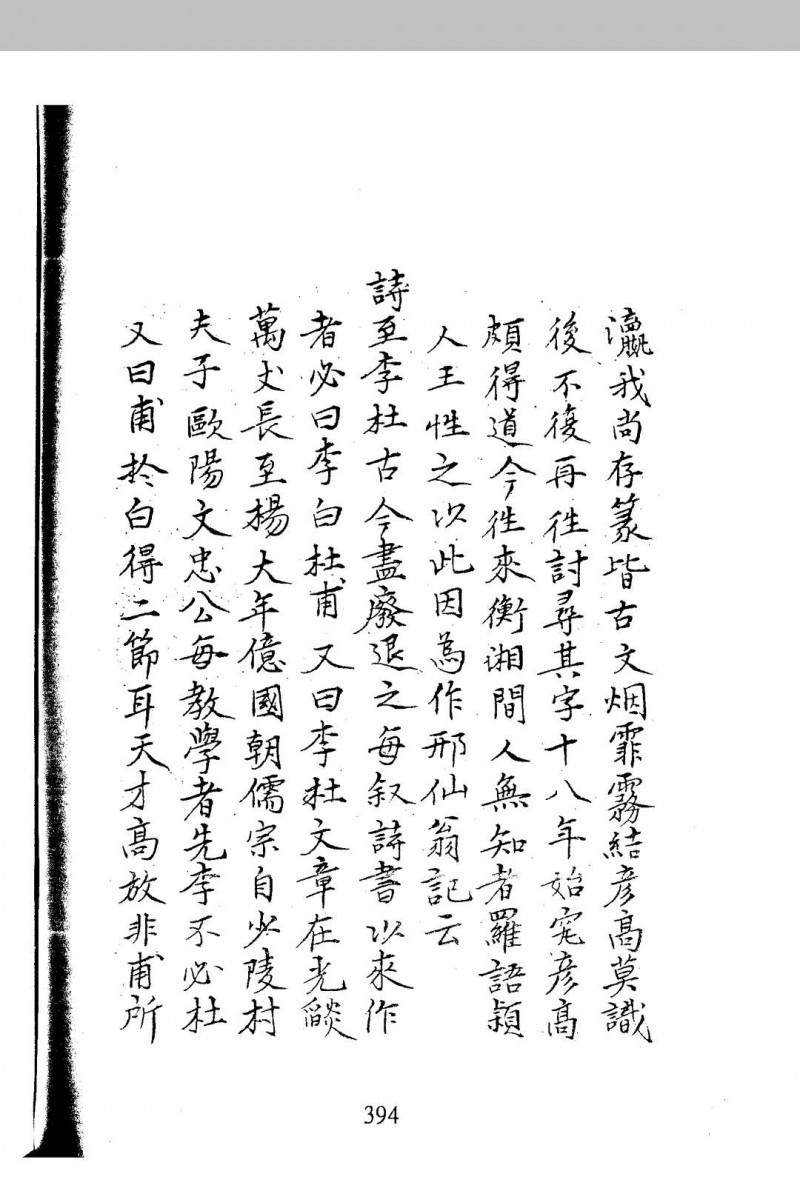 瀛我尚存篆皆古文烟霏霧結彦高莫識
後不復再徃討尋其字十八年始完彦高
頗得道今徃來衡湘間人無知者羅語頴
人王性之以此因為作邢仙翁記云
詩至李杜古今盡廢退之每叙詩書以來作
者必曰李白杜甫又曰李杜文章在光燄
萬丈長至楊大年億國朝儒宗自少陵村
夫子歐陽文忠公每教學者先李不必杜
又曰甫於白得二節耳天才高放非甫所
394